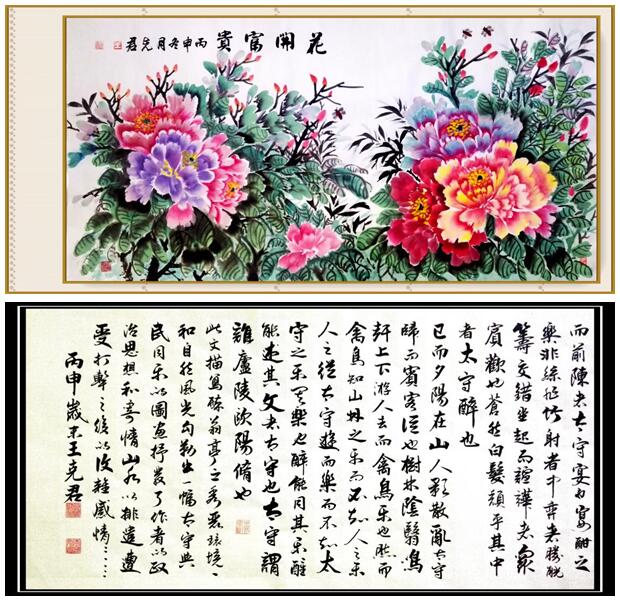 花開富貴 丙申冬月克君
而前陳者太守宴也宴酣之
樂非絲非竹射者中弈者勝觥
籌交錯坐起而諠譁者衆
賓歡也蒼然白髮頹乎其中
者太守醉也
已而夕陽在山人影散亂太守
歸而賓客從也樹林陰翳鳴
聲上下遊人去而禽鳥樂也然而
禽鳥知山林之樂而不知人之樂
人之從太守遊而樂而不知太
守之樂其樂也醉能同其樂醒
能述其文者太守也太守謂
誰廬陵歐陽脩也
此文描寫醉翁亭之秀麗環境、
和自然風光勾勒出一幅太守與
民同樂的圖畫抒發了作者的政
治思想和寄情山水以排遣遭
受打擊之後的複雜感情……
丙申歲末王克君